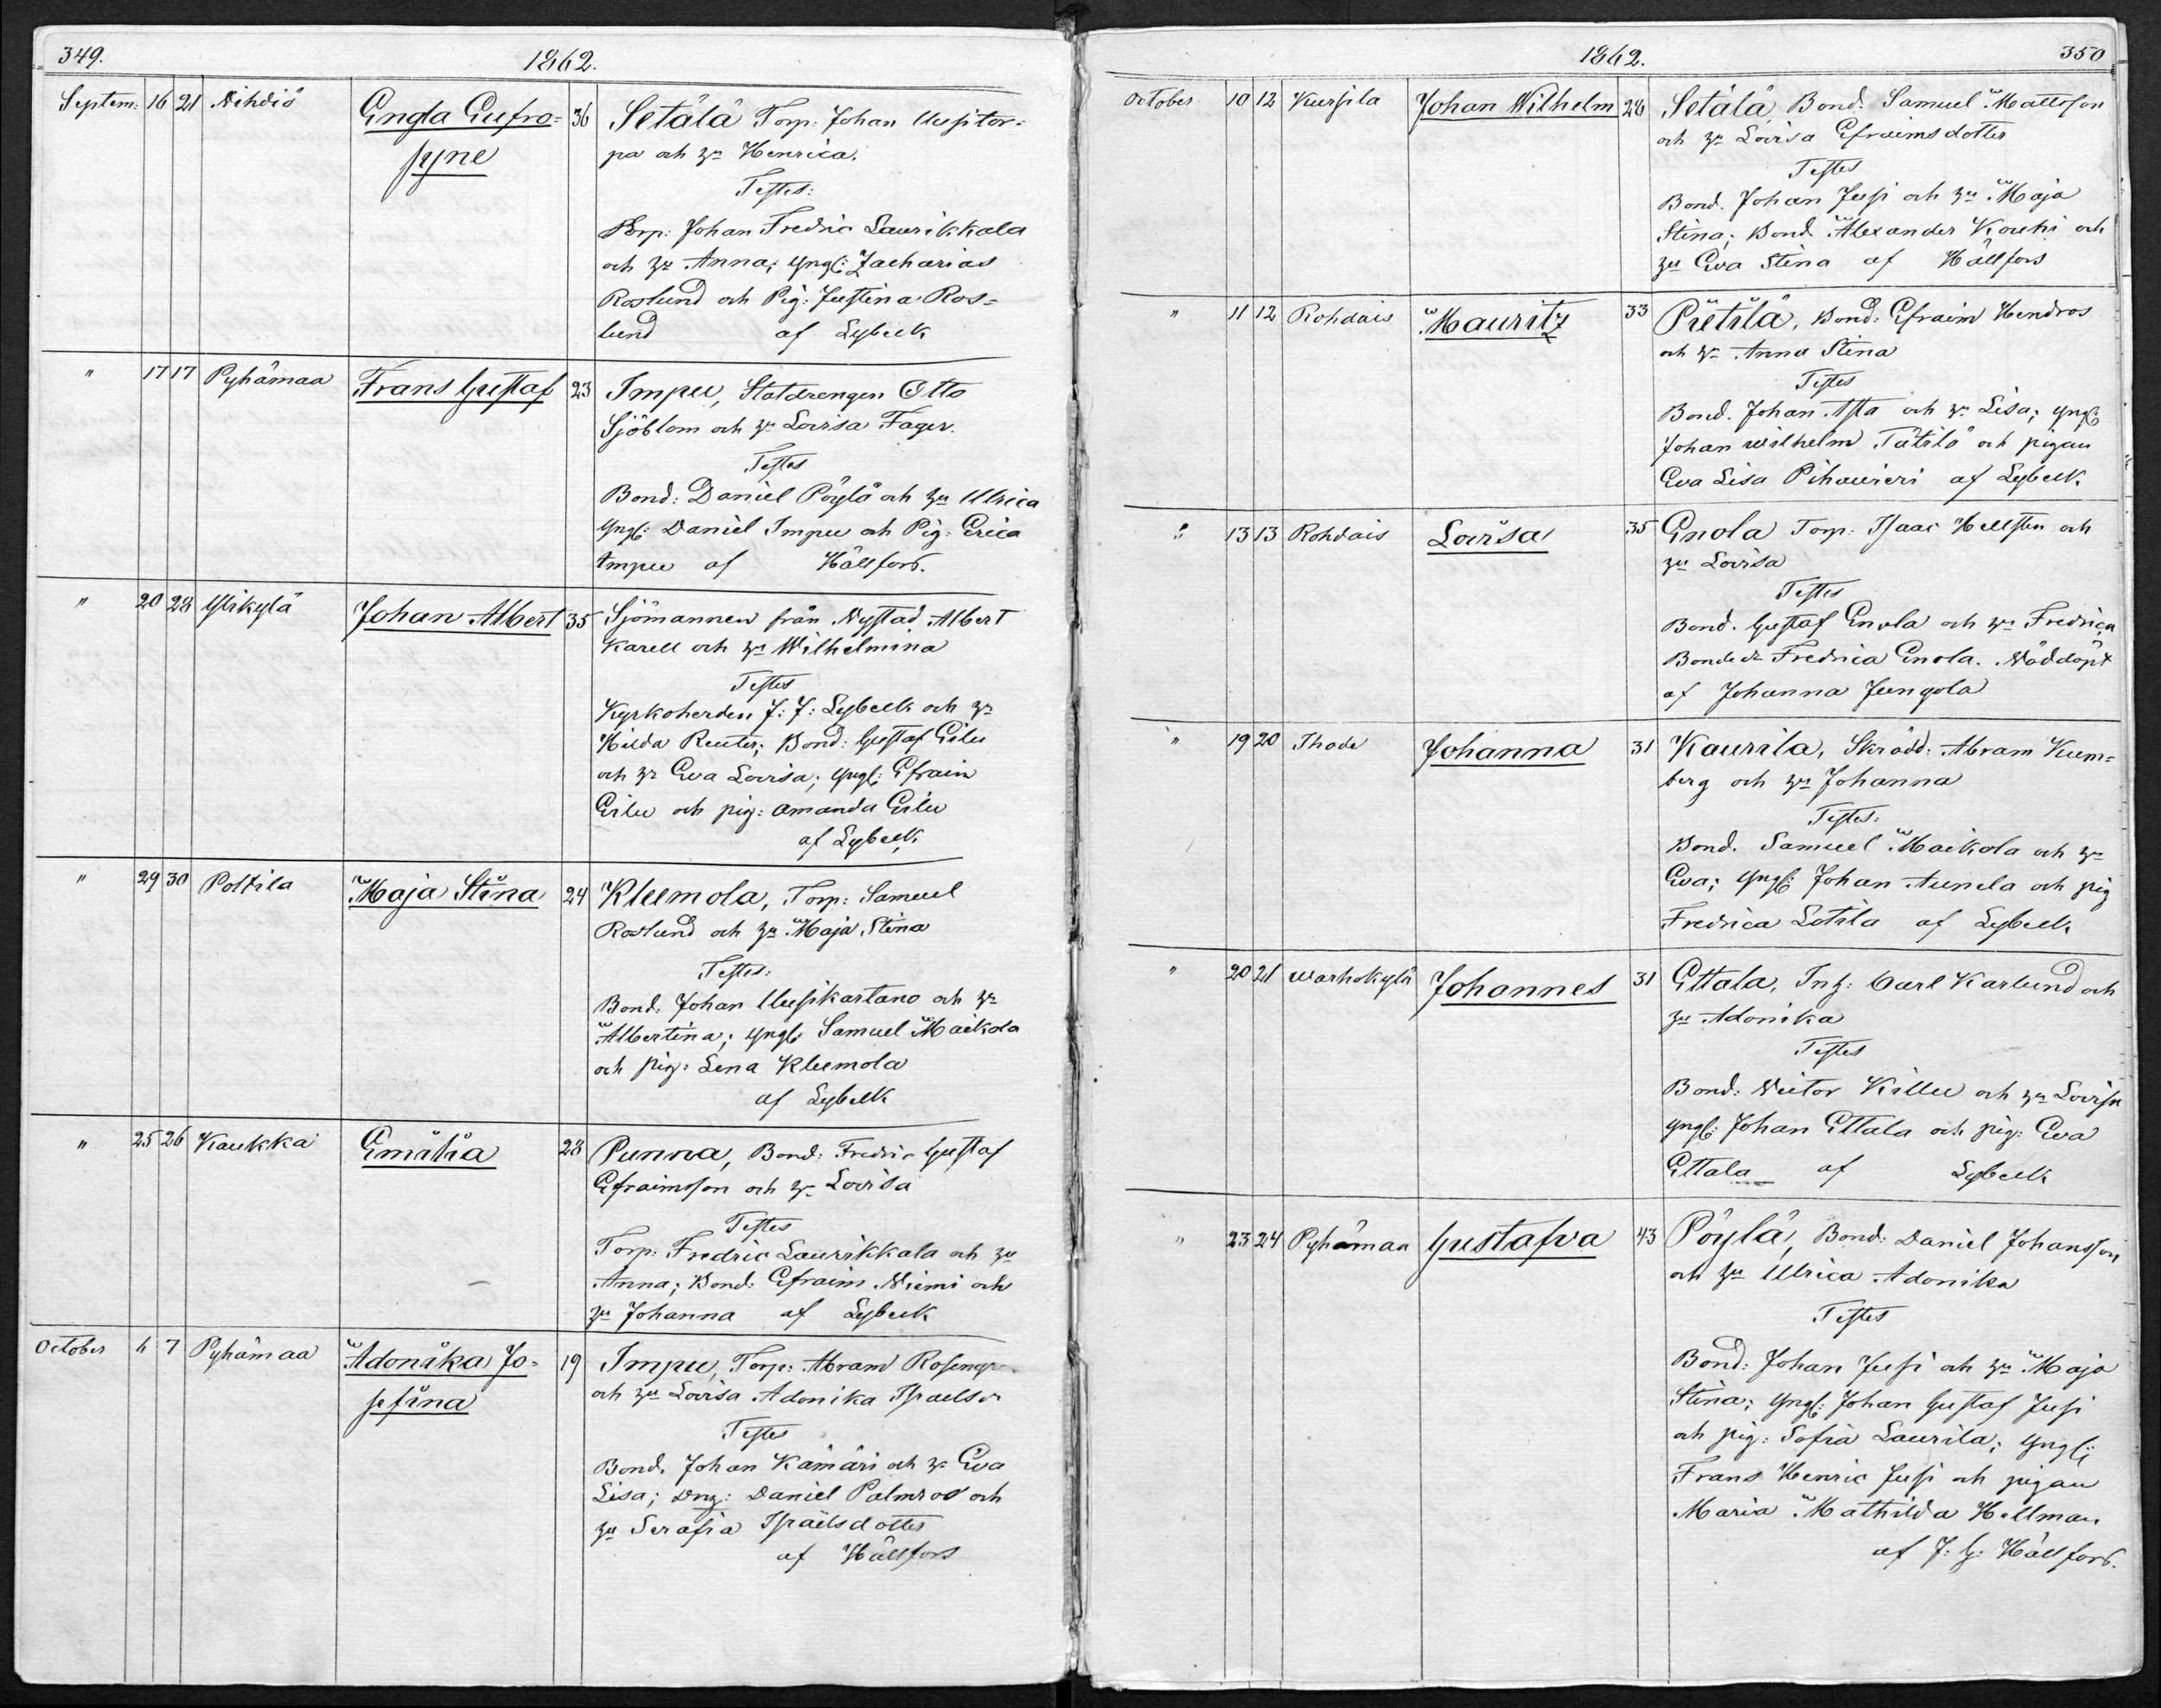 349.
1862.
Septem: 16 21 Nihdiö Engla Eufro= 36 Setälä Torp: Johan Uusitor=
syne pa och hu Henrica.
Testes:
Torp: Johan Fredric Laurikkala
och hu Anna; Yngl: Zacharias
Roslund och Pig: Justina Ros=
lund af Lybeck
" 17 17 Pyhämaa Frans Gustaf 23 Impu, Statdrengen Otto
Sjöblom och hu Lovisa Fager.
Testes
Bond: Daniel Pöylä och hu Ulrica
Yngl: Daniel Impu och Pig: Erica
Impu af Hällfors.
" 20 28 Ylikylä Johan Albert 35 Sjömannen från Nystad Albert
Karell och hu Wilhelmina
Testes
Kyrkoherden J: J: Lybeck och hu
Hilda Reuter; Bond: Gustaf Eilu
och hu Eva Lovisa; Yngl: Efraim
Eilu och pig: Amanda Eilu
af Lybeck.
" 29 30 Polttila Maja Stina 24 Kleemola, Torp: Samuel
Roslund och hu Maja Stina
Testes:
Bond. Johan Uusikartano och hu
Albertina; Yngl: Samuel Maikola
och pig: Lena Kleemola
af Lybeck
" 25 26 Kaukka Emilia 28 Punna, Bond: Fredric Gustaf
Efraimsson och hu Lovisa
Testes
Torp: Fredric Laurikkala och hu
Anna; Bond: Efraim Niemi och
hu Johanna af Lybeck
October 6 7 Pyhämaa Adonika Jo= 19 Impu, Torp: Abram
sefina och hu Lovisa Adonika Israelsdr
Testes
Bond. Johan Kämäri och hu Eva
Lisa; Dng: Daniel Palmroo och
hu Serafia Israelsdotter
af Hällfors
1862.
350
October 10 12 Kursila Johan Wilhelm 28 Setälä, Bond: Samuel Mattsson
och hu Lovisa Efraimsdotter
Testes
Bond. Johan Jusi och hu Maja
Stina; Bond. Alexander Kouhi och
hu Eva Stina af Hällfors
" 11 12 Rohdais Mauritz 33 Pietilä, Bond: Efraim Hendros
och hu Anna Stina
Testes
Bond. Johan Asta och hu Lisa; Yngl:
Johan Wilhelm Tätilä och pigan
Eva Lisa Pihavieri af Lybeck.
" 13 13 Rohdais Lovisa 35 Enola Torp: Isaac Hellsten och
hu Lovisa
Testes
Bond. Gustaf Enola och hu Fredrica
Bondedr Fredrica Enola. Nöddöpt
af Johanna Jungola
" 19 20 Ihode Johanna 31 Kaurila, Skrädd: Abram Kum=
berg och hu Johanna
Testes:
Bond. Samuel Maikola och hu
Eva; Yngl: Johan Aunela och pig
Fredrica Sotila af Lybeck
" 20 21 Warhokylä Johannes 31 Ettala, Inh: Carl Karlund och
hu Adonika
Testes
Bond: Victor Killu och hu Lovisa
Yngl: Johan Ettala och pig: Eva
Ettala af Lybeck
" 23 24 Pyhämaa Gustafva 43 Pöylä, Bond: Daniel Johansson
och hu Ulrica Adonika
Testes
Bond: Johan Jusi och hu Maja
Stina; Yngl: Johan Gustaf Jusi
och pig: Sofia Laurila; Yngl:
Frans Henric Jusi och pigan
Maria Mathilda Hellman.
af J: G: Hällfors.